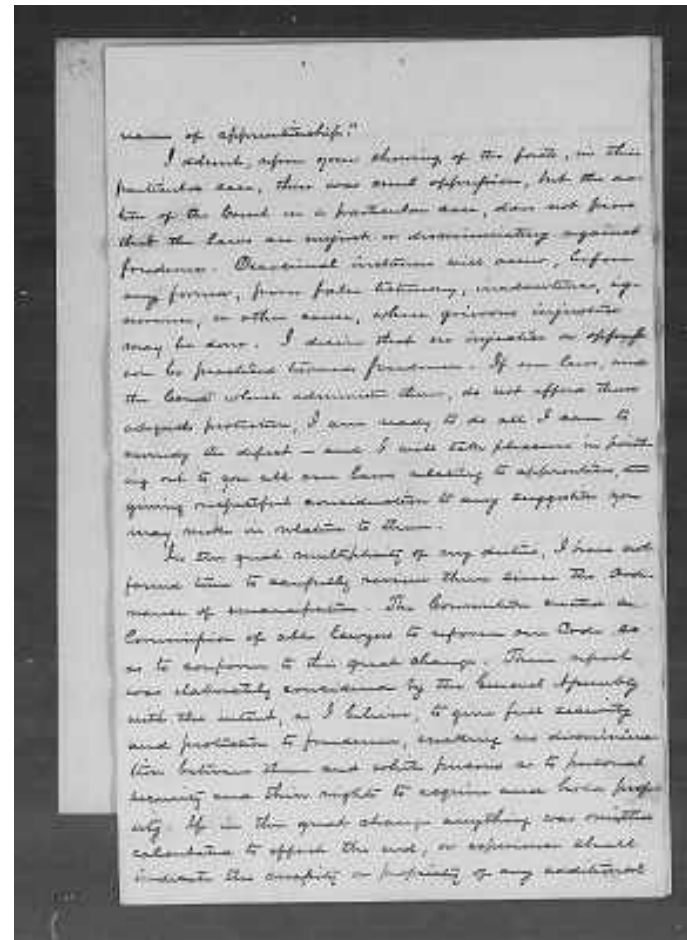 name of apprenticeship."
I admit, upon your showing of the facts, in this
particular case, there was cruel oppression, but the ac-
tion of the Court in a particular case, does not prove
that the laws are unjust or discriminating against
freedmen. Occasional instances will occur, before
any forum, from false testimony, inadvertence, ig-
norance, or other cause, where grievous injustice
may be done. I desire that no injustice or oppress-
ion be practiced towards freedmen. If our laws, and
the Courts which administer them, do not afford them
adequate protection, I am ready to do all I can to
remedy the defect - and I will take pleasure in point-
ing out to you all our laws relating to apprentices, and
giving respectful consideration to any suggestion you
may make in relation to them.
In the great multiplicity of my duties, I have not
found time to carefully review them since the Ordi-
nance of emancipation. The Convention created a
Commission of able lawyers to reform our Code so
as to conform to this great change. Their report
was elaborately considered by the General Assembly
with the intent, as I believe, to give full security
and protection to freedmen, making no discrimina-
tion between them and white persons as to personal
security and their rights to acquire and hold prop-
erty. If in this great change anything was omitted
calculated to effect the end, or experience shall
indicate the necessity or propriety of any additional